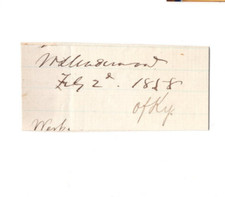 W L Underwood
Feby 2d. 1858
of Ky.